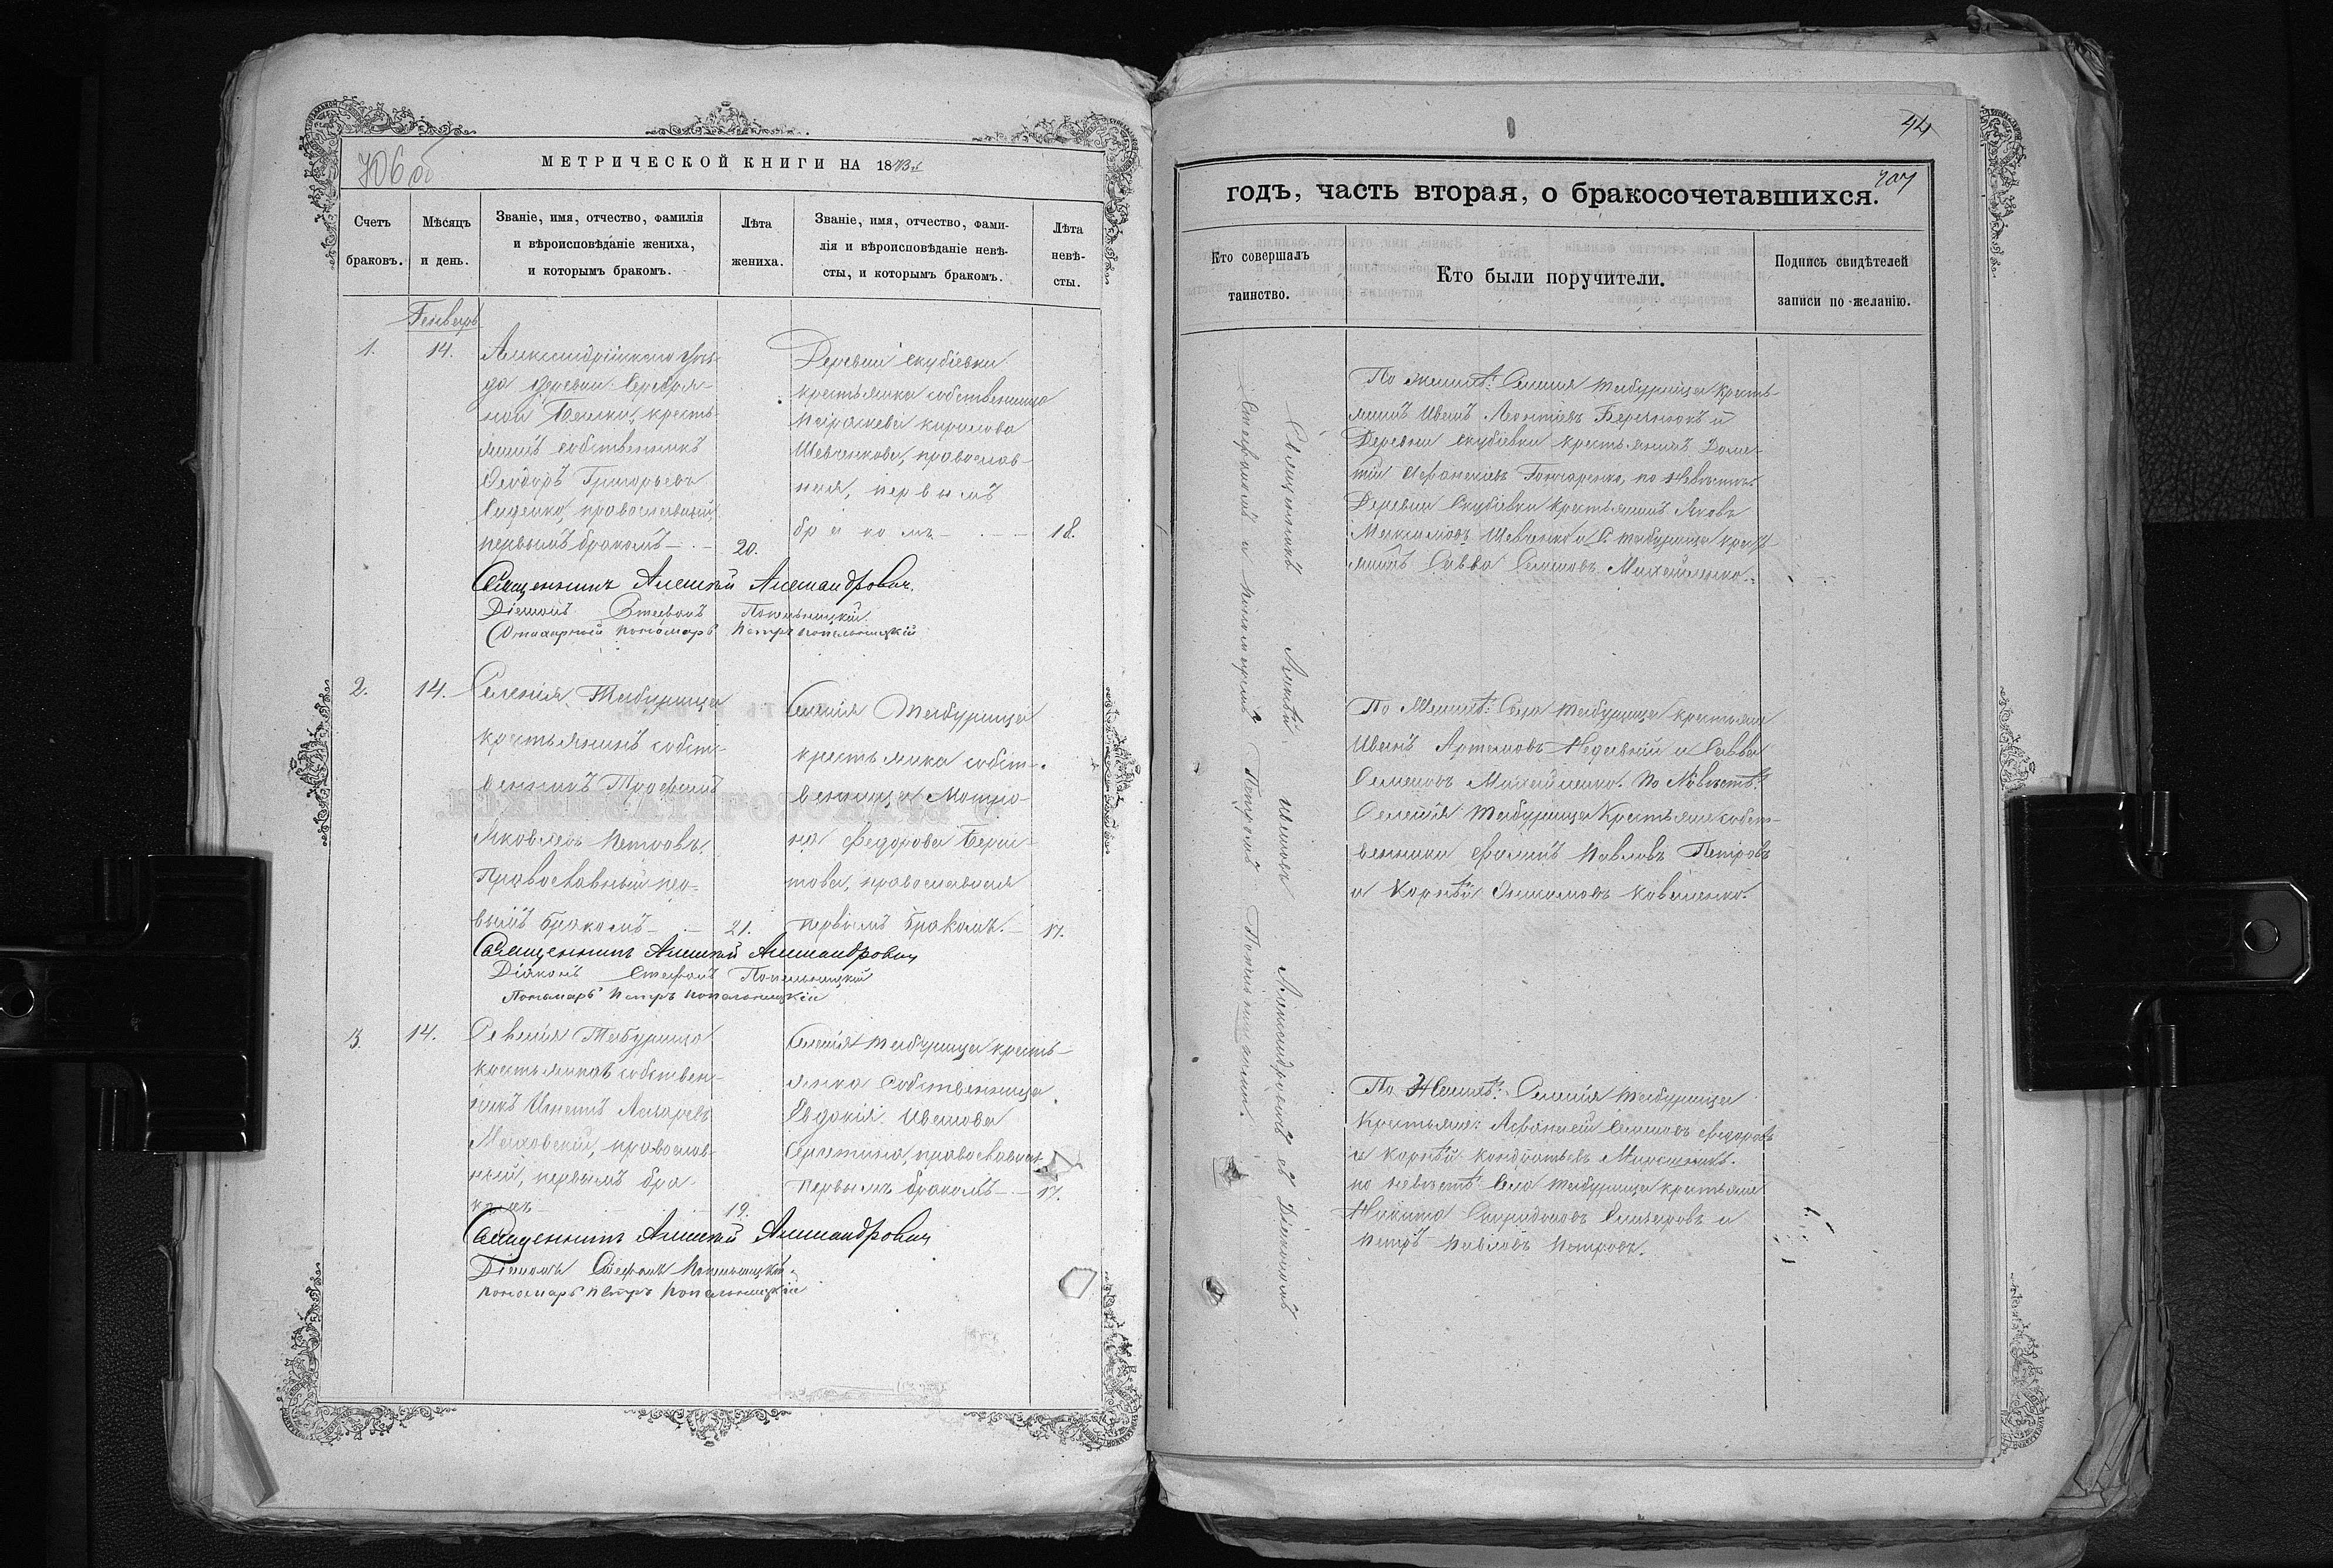 706 об
МЕТРИЧЕСКОЙ КНИГИ НА 1873й
Счетъ
браковъ.
Мѣсяцъ
и день.
Званіе, имя, отчество, фамилія
и вѣроисповѣданіе жениха,
и которымъ бракомъ.
Лѣта
жениха.
Званіе, имя, отчество, фами-
лія и вѣроисповѣданіе невѣ-
сты, и которымъ бракомъ.
Лѣта
невѣ-
сты.
Генварь
1.
14.
Александрійскаго уѣз-
да деревни Серебря-
ной Балки, кресть-
янинъ собственникъ
Ѳеодоръ Григорьевъ
православный,
первымъ бракомъ
20.
Деревни Скубіевки
крестьянка собственница
Параскева Кирилова
Шевченкова, православ-
ная, первымъ
бракомъ
18.
Священникъ Алексѣй Александровичъ
Діаконъ Стефанъ
пономарь Петръ
2.
14.
Селенія Табурища
крестьянинъ собст-
венникъ Трофимъ
Яковлевъ Петровъ,
Православный пер-
вымъ бракомъ
21.
Селенія Табурища
крестьянка собст-
венница Матро-
на Федорова
православная
первымъ бракомъ.
17.
Священникъ Алексѣй Александровичъ
Діаконъ Стефанъ
Пономарь Петръ
3.
14.
Селенія Табурища
крестьянинъ собствен-
никъ Игнатъ Захаревъ
православ-
ный, первымъ бра
комъ
19.
Селенія Табурища кресть-
янка Собственница
Евдокія Иванова
православная
первымъ бракомъ
17.
Священникъ Алексѣй Александровичъ
Діаконъ Стефанъ
пономарь Петръ
44
707
годъ, часть вторая, о бракосочетавшихся.
Кто совершалъ
таинство.
Кто были поручители.
Подпись свидѣтелей
записи по желанію.
Священникъ Алексѣй Александровичъ съ Діакономъ
Стефаномъ и пономаремъ Петромъ
По женихѣ: Селенія Табурища кресть-
янинъ Иванъ Леонтіевъ и
Деревни Скубіевки крестьянинъ
Гончаренко, по невѣстѣ:
Деревни Скубіевки крестьянинъ Яковъ
Максимовъ Шевченко и С. Табурища кресть-
янинъ Савва Семеновъ Михайленко.
По Женихѣ: Села Табурища крестьяне
Иванъ Артемовъ и Савва
Семеновъ Михайленко. По Невѣстѣ:
Селенія Табурища Крестьяне собст-
венники Павловъ Петровъ
и Корнѣй
По Женихѣ: Селенія Табурища
Крестьяне: Афанасій Семеновъ Федоровъ
и Корнѣй Кондратьевъ
по невѣстѣ: Села Табурища крестьяне
Никита Спиридоновъ и
Петръ Павловъ Петровъ.